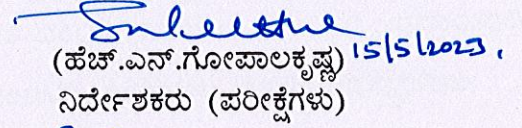 (ಹೆಚ್.ಎನ್.ಗೋಪಾಲಕೃಷ್ಣ) 15/5/2023.
ನಿರ್ದೇಶಕರು (ಪರೀಕ್ಷೆಗಳು)